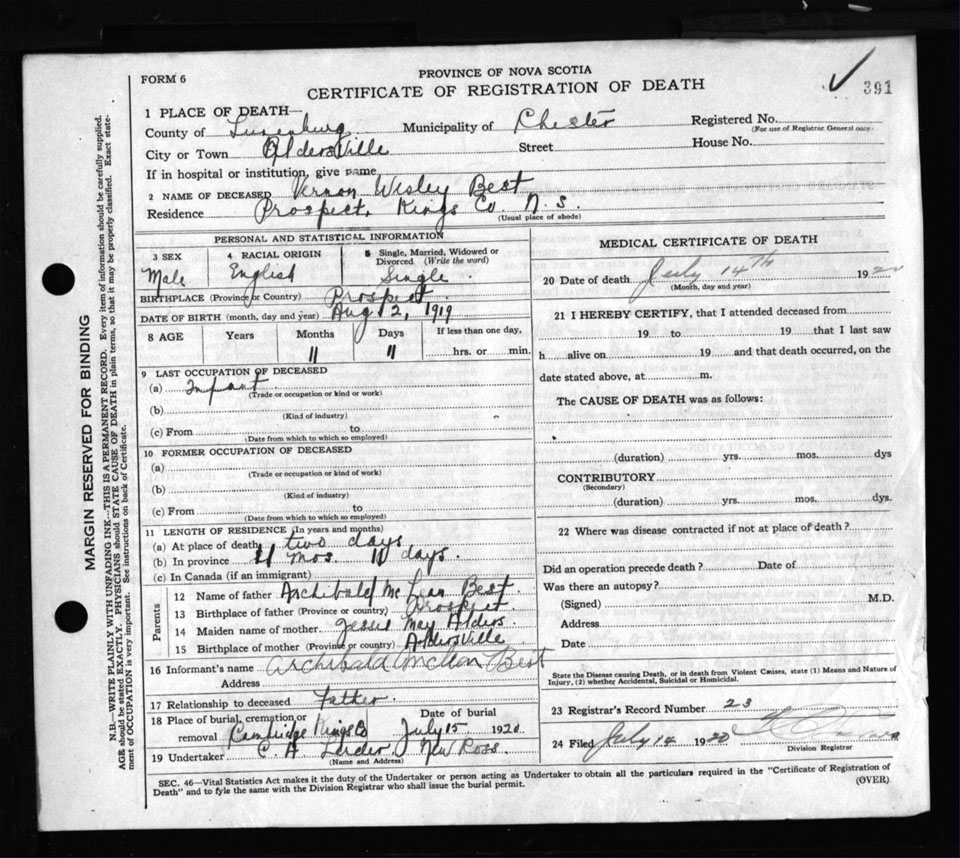 FORM 6
PROVINCE OF NOVA SCOTIA
CERTIFICATE OF REGISTRATION OF DEATH
✓ 391
1 PLACE OF DEATH—
County of Lunenburg Municipality of Chester Registered No.
(For use of Registrar General only.
City or Town Aldersville Street House No.
If in hospital or institution, give name
2 NAME OF DECEASED Vernon Wisley Best
Residence Prospect, Kings Co. N.S.
(Usual place of abode)
PERSONAL AND STATISTICAL INFORMATION
3 SEX
Male
4 RACIAL ORIGIN
English
5 Single, Married, Widowed or
Divorced (Write the word)
Single
BIRTHPLACE (Province or Country) Prospect
DATE OF BIRTH (month, day and year) Aug 12, 1919
8 AGE Years Months Days If less than one day,
11 11 hrs. or min.
9 LAST OCCUPATION OF DECEASED
(a) Infant
(Trade or occupation or kind or work)
(b)
(Kind of industry)
(c) From to
(Date from which to which so employed)
10 FORMER OCCUPATION OF DECEASED
(a)
(Trade or occupation or kind of work)
(b)
(Kind of industry)
(c) From to
(Date from which to which so employed)
11 LENGTH OF RESIDENCE (In years and months)
(a) At place of death two days
(b) In province 11 mos. 11 days.
(c) In Canada (if an immigrant)
Parents
12 Name of father Archibald McLean Best
13 Birthplace of father (Province or country) Prospect
14 Maiden name of mother Jessie May Alders
15 Birthplace of mother (Province or country) Aldersville
16 Informant's name Archibald McLean Best
Address
17 Relationship to deceased Father
18 Place of burial, cremation or Date of burial
removal Cambridge Kings Co July 15 1920
19 Undertaker C. A. New Ross
(Name and Address)
MEDICAL CERTIFICATE OF DEATH
20 Date of death July 14th 1920
(Month, day and year)
21 I HEREBY CERTIFY, that I attended deceased from
19 to 19 that I last saw
h alive on 19 and that death occurred, on the
date stated above, at m.
The CAUSE OF DEATH was as follows:
(duration) yrs. mos. dys
CONTRIBUTORY
(Secondary)
(duration) yrs. mos. dys.
22 Where was disease contracted if not at place of death?
Did an operation precede death? Date of
Was there an autopsy?
(Signed) M.D.
Address
Date
State the Disease causing Death, or in death from Violent Causes, state (1) Means and Nature of
Injury, (2) whether Accidental, Suicidal or Homicidal.
23 Registrar's Record Number 23
24 Filed July 14 1920
Division Registrar
SEC. 46—Vital Statistics Act makes it the duty of the Undertaker or person acting as Undertaker to obtain all the particulars required in the "Certificate of Registration of
Death" and to fyle the same with the Division Registrar who shall issue the burial permit.
(OVER)
MARGIN RESERVED FOR BINDING
N.B.—WRITE PLAINLY WITH UNFADING INK—THIS IS A PERMANENT RECORD. Every item of information should be carefully supplied.
AGE should be stated EXACTLY. PHYSICIANS should STATE CAUSE OF DEATH in plain terms, so that it may be properly classified. Exact state-
ment of OCCUPATION is very important. See instructions on back of Certificate.